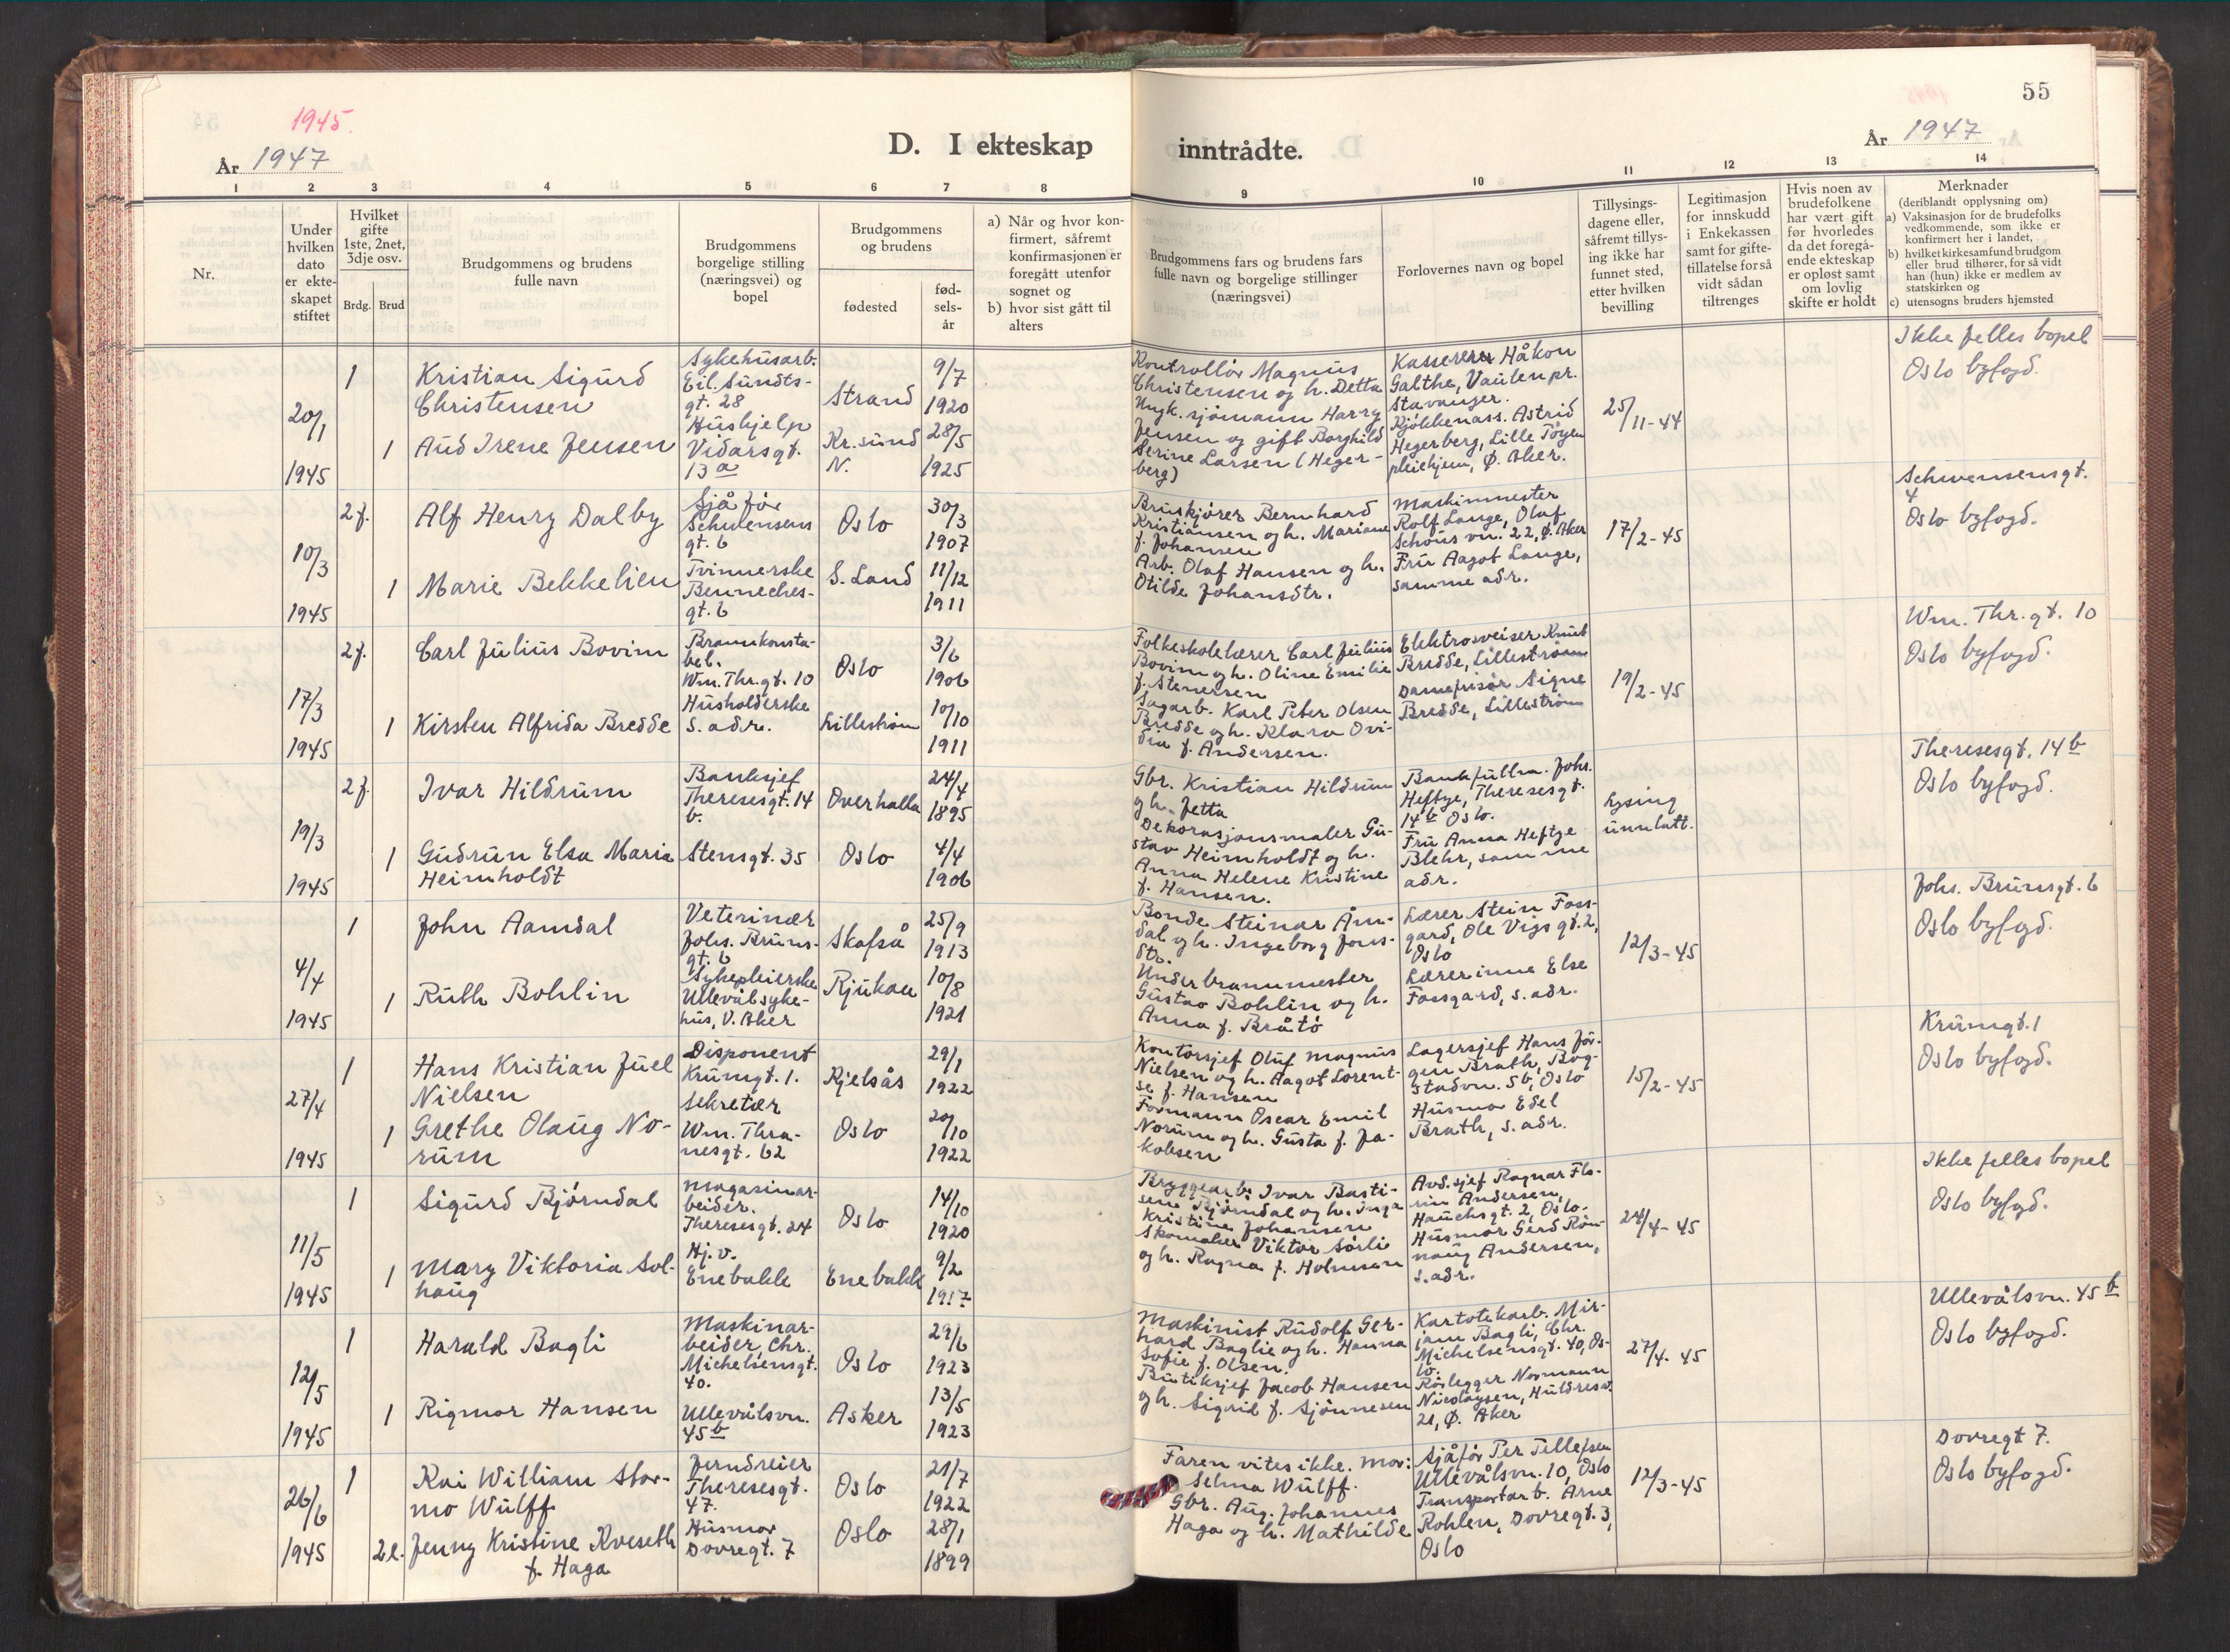 1945.
År 1947
D. I ekteskap inntrådte.
År 1947
55
1 2 3 4 5 6 7 8 9 10 11 12 13 14
Nr.
Under hvilken dato er ekteskapet stiftet
Hvilket gifte 1ste, 2net, 3dje osv.
Brdg. Brud
Brudgommens og brudens fulle navn
Brudgommens borgelige stilling (næringsvei) og bopel
Brudgommens og brudens
fødested
fødsels-år
a) Når og hvor konfirmert, såfremt konfirmasjonen er foregått utenfor sognet og
b) hvor sist gått til alters
Brudgommens fars og brudens fars fulle navn og borgelige stillinger (næringsvei)
Forlovernes navn og bopel
Tillysingsdagene eller, såfremt tillysing ikke har funnet sted, etter hvilken bevilling
Legitimasjon for innskudd i Enkekassen samt for giftetillatelse forså vidt sådan tiltrenges
Hvis noen av brudefolkene har vært gift før hvorledes da det foregående ekteskap er opløst samt om lovlig skifte er holdt
Merknader
(deriblandt opplysning om)
a) Vaksinasjon for de brudefolks vedkommende, som ikke er konfirmert her i landet,
b) hvilket kirkesamfund brudgom eller brud tilhører, for så vidt han (hun) ikke er medlem av statskirken og
c) utensogns bruders hjemsted
20/1 1945
1
Kristian Sigurd
Christensen
Sykehusarb.
Eil. Sundts-
gt. 28
Strand
9/7
1920
1
Aud Irene Jensen
Hushjelp
Vidarsgt.
13 a
Kr.sund
N.
28/5
1925
Kontrollør Magnus
Christensen og h. Detta
Ungk. sjømann Harry
Jensen og gift Borghild
Serine Larsen (Heger-
berg)
Kasserer Håkon
Galthe, Vaulen pr.
Stavanger.
Kjøkkenass. Astrid
Hegerberg, Lille Tøyen
pleiehjem, Ø. Aker.
25/11-44
Ikke felles bopel
Oslo byfogd.
10/3 1945
2 f.
Alf Henry Dalby
Sjåfør
Schwensens
gt. 6
Oslo
30/3
1907
1
Marie Bekkelien
Tvinnerske
Benneches-
gt. 6
S. Land
11/12
1911
Bruskjører Bernhard
Kristiansen og h. Mariane
f. Johansen
Arb. Olaf Hansen og h.
Otilde Johansdtr.
Maskinmester
Rolf Lange, Olaf
Schous vn. 22, Ø. Aker
Fru Aagot Lange,
samme adr.
17/2-45
Schwensensgt.
4
Oslo byfogd.
17/3 1945
2 f.
Carl Julius Bovim
Brannkonsta-
bel.
Wm. Thr. gt. 10
Oslo
3/6
1906
1
Kirsten Alfrida Bredde
Husholderske
s. adr.
Lillestrøm
10/10
1911
Folkeskolelærer Carl Julius
Bovim og h. Oline Emilie
f. Stenersen
Sagarb. Karl Peter Olsen
Bredde og h. Klara Ovi-
dia f. Andersen.
Elektrosveiser Knut
Bredde, Lillestrøm
Damefrisør Signe
Bredde, Lillestrøm
19/2-45
Wm. Thr. gt. 10
Oslo byfogd.
19/3 1945
2 f.
Ivar Hildrum
Banksjef
Theresesgt. 14
b.
Overhalla
24/4
1895
1
Gudrun Elsa Maria
Heimholdt
Stensgt. 35
Oslo
4/4
1906
Gbr. Kristian Hildrum
og h. Jetta
Dekorasjonsmaler Gu-
stav Heimholdt og h.
Anna Helene Kristine
f. Hansen.
Bankfullm. Johs.
Heftye, Theresesgt.
14 b Oslo.
Fru Anna Heftye
Blehr, samme
adr.
Lysing
unnlatt.
Theresesgt. 14 b
Oslo byfogd.
4/4 1945
1
John Aamdal
Veterinær
Johs. Bruns-
gt. 6
Skafså
25/9
1913
1
Ruth Bohlin
Sykepleierske
Ullevål syke-
hus, V. Aker
Rjukan
10/8
1921
Bonde Steinar Åm-
dal og h. Ingeborg Jons-
dtr.
Underbrannmester
Gustav Bohlin og h.
Anna f. Bråtø
Lærer Stein Foss-
gard, Ole Vigs gt. 2,
Oslo
Lærerinne Else
Fossgard, s. adr.
12/3-45
Johs. Brunsgt. 6
Oslo byfogd.
27/4 1945
1
Hans Kristian Juel
Nielsen
Disponent
Krumgt. 1.
Kjelsås
29/1
1922
1
Grethe Olaug No-
rum
Sekretær
Wm. Thra-
nesgt. 62
Oslo
20/10
1922
Kontorsjef Oluf Magnus
Nielsen og h. Aagot Lorent-
se f. Hansen
Formann Oscar Emil
Norum og h. Gusta f. Ja-
kobsen
Lagersjef Hans Jør-
gen Brath, Bog-
stadvn. 5b, Oslo
Husmor Edel
Brath, s. adr.
15/2-45
Krumgt. 1
Oslo byfogd.
11/5 1945
1
Sigurd Bjørndal
Magasinar-
beider.
Theresesgt. 24
Oslo
14/10
1920
1
Mary Viktoria Sol-
haug
Hj. v.
Enebakk
Enebakk
9/2
1917
Bryggearb. Ivar Basti-
sen Bjørndal og h. Inga
Kristine Johansen
Skomaker Viktor Sørli
og h. Ragna f. Holmsen
Avd.sjef Ragnar Flo-
rin Andersen,
Hauchsgt. 2, Oslo.
Husmor Gerd Røn-
naug Andersen,
s. adr.
24/4-45
Ikke felles bopel
Oslo byfogd.
12/5 1945
1
Harald Bagli
Maskinar-
beider, Chr.
Michelsensgt.
40.
Oslo
29/6
1923
1
Rigmor Hansen
Ullevålsvn.
45 b
Asker
13/5
1923
Maskinist Rudolf Ger-
hard Baglie og h. Hanna
Sofie f. Olsen.
Butikksjef Jacob Hansen
og h. Sigrid f. Sjønnesen
Kartotekarb. Mir-
jam Bagli, Chr.
Michelsensgt. 40, Os-
lo.
Rørlegger Normann
Nicolaysen, Huldresv.
21, Ø. Aker
27/4-45
Ullevålsvn. 45 b
Oslo byfogd.
26/6 1945
1
Kai William Stor-
mo Wulff
Jerndreier
Theresesgt.
47.
Oslo
21/7
1922
2 e.
Jenny Kristine Kveseth
f. Haga
Husmor
Dovregt. 7
Oslo
28/1
1899
Faren vites ikke. Mor:
Selma Wulff.
Gbr. Aug. Johannes
Haga og h. Mathilde
Sjåfør Per Tellefsen
Ullevålsvn. 10, Oslo
Transportarb. Arne
Rohlen, Dovregt. 3,
Oslo
12/3-45
Dovregt 7.
Oslo byfogd.